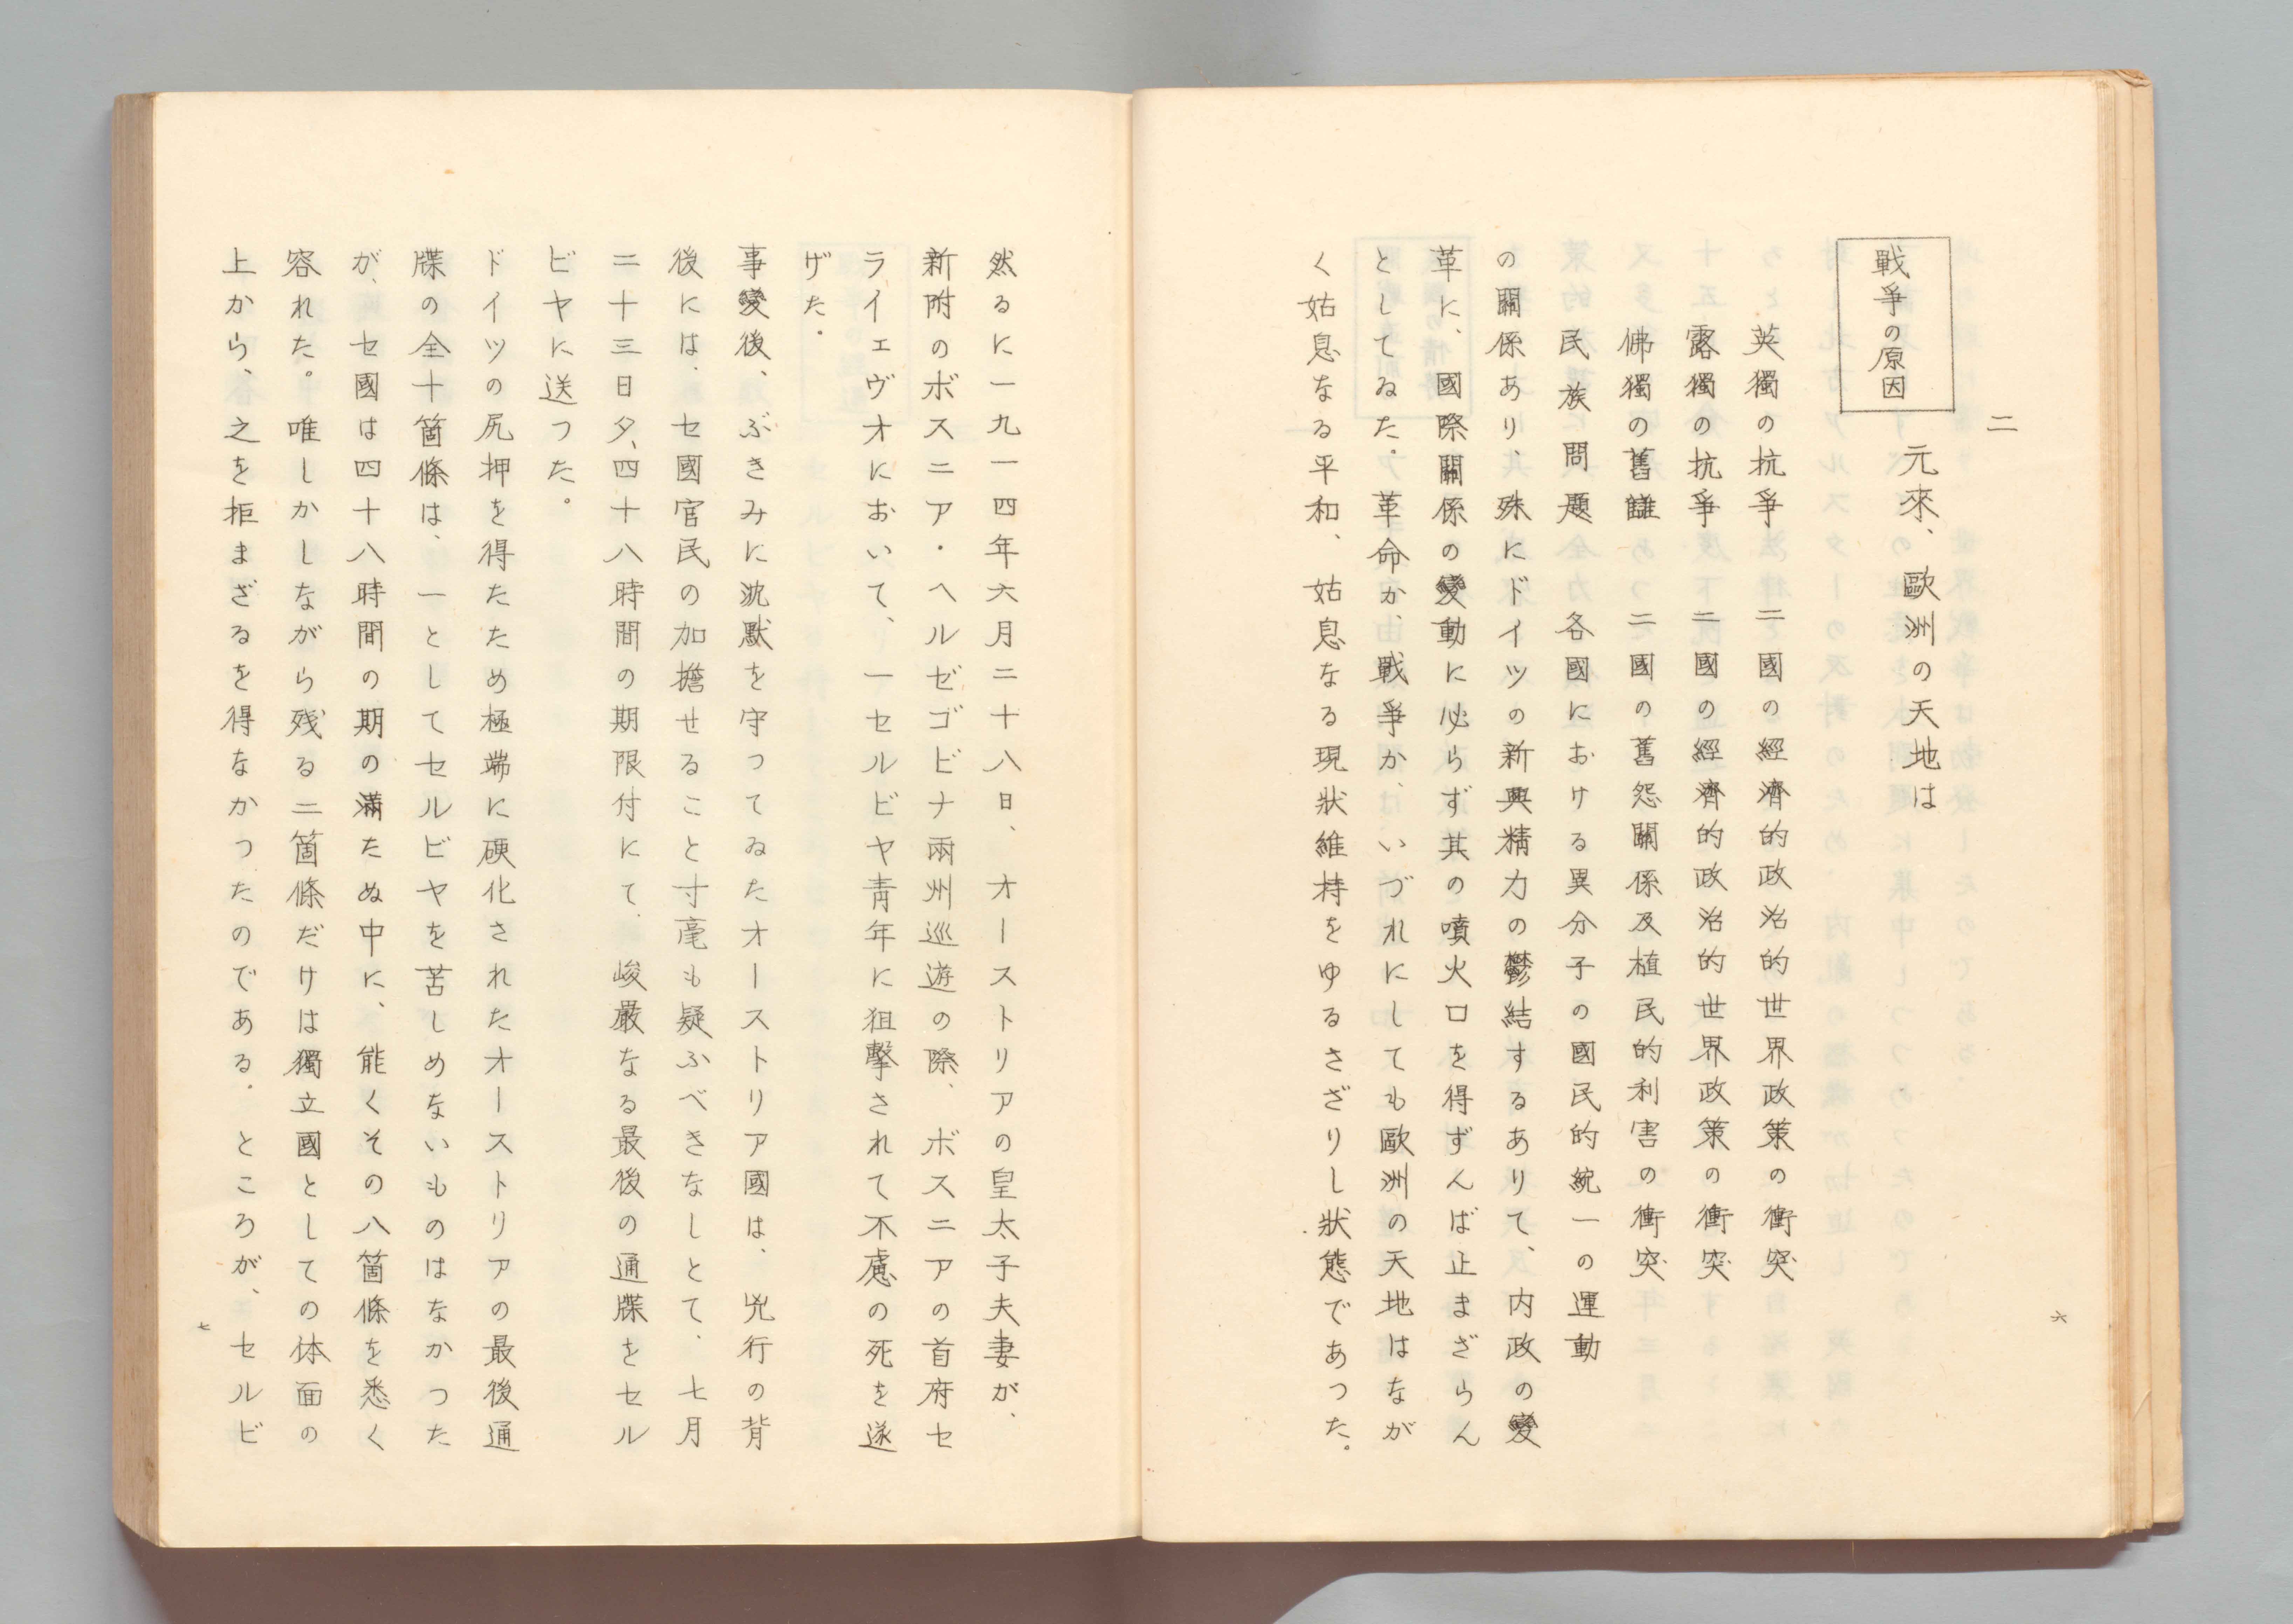 二
戰爭の原因
元來、歐洲の天地は
英獨の抗爭　二國の經濟的政治的世界政策の衝突
露獨の抗爭　二國の經濟的政治的世界政策の衝突
佛獨の舊讎　二國の舊怨關係及植民的利害の衝突
民族問題　各國における異分子の國民的統一の運動
の關係あり、殊にドイツの新興精力の鬱結するありて、内政の變
革に、國際關係の變動に必らず其の噴火口を得ずんば止まざらん
としてゐた。革命か、戰爭か、いづれにしても歐洲の天地はなが
く姑息なる平和、姑息なる現狀維持をゆるさざりし狀態であつた。
六
然るに一九一四年六月二十八日、オーストリアの皇太子夫妻が、
新附のボスニア・ヘルゼゴビナ兩州巡遊の際、ボスニアの首府セ
ライェヴオにおいて、一セルビヤ靑年に狙擊されて不慮の死を遂
げた。
事變後、ぶきみに沈默を守つてゐたオーストリア國は、兇行の背
後には、セ國官民の加擔せること寸毫も疑ふべきなしとて、七月
二十三日夕、四十八時間の期限付にて、峻嚴なる最後の通牒をセル
ビヤに送つた。
ドイツの尻押を得たため極端に硬化されたオーストリアの最後通
牒の全十箇條は、一としてセルビヤを苦しめないものはなかつた
が、セ國は四十八時間の期の滿たぬ中に、能くその八箇條を悉く
容れた。唯しかしながら残る二箇條だけは獨立國としての体面の
上から、之を拒まざるを得なかつたのである。ところが、セルビ
七